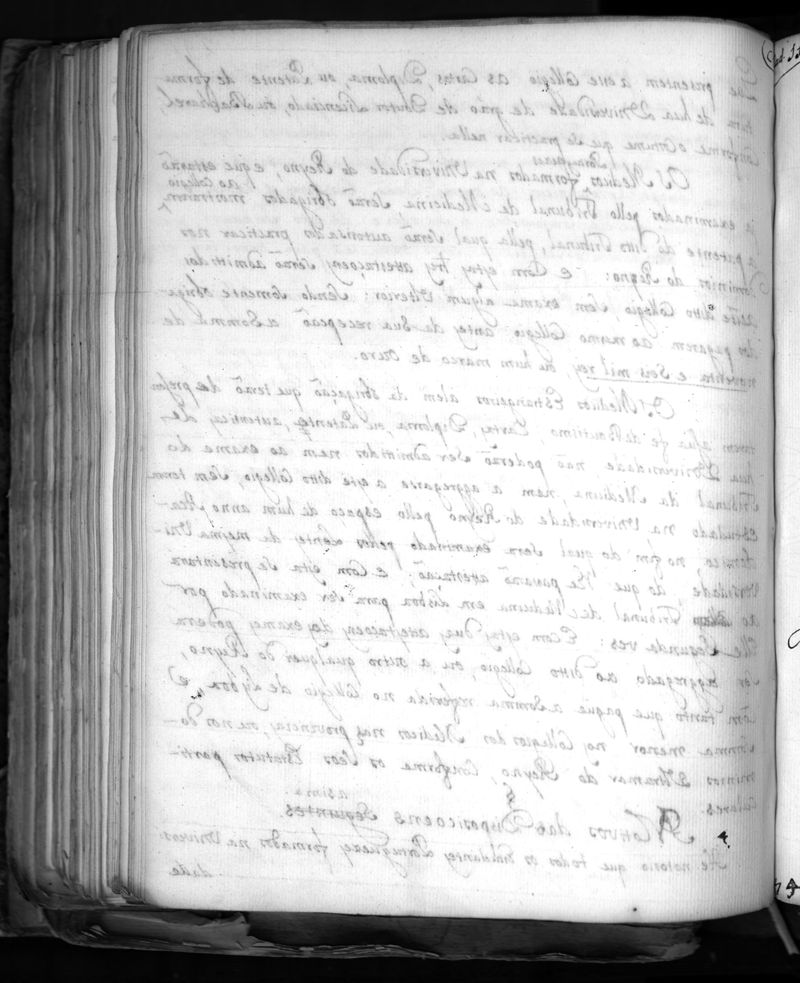 presentem a este Collegio as Cartas, Diploma, ou Patente de forma
tura de hua Universidade de gráo de Doutor Licenciado, ou Bacharel,
Conforme o Comume que se practicar nella.
Portugueses
Os Medicos formados na Universidade do Reyno, e que estarão
já examinados pello Tribunal de Medicina serão obrigados mostrarem
ao Collegio
a patente do ditto Tribunal, pella qual serão autorisados practicar nos
Dominios do Reyno: e Com estas tres attestaçoens serão admittidos
ditto Collegio sem exame algum ulterior: sendo somente obriga-
dos pagarem ao mesmo Collegio antes da sua recepção a Somma de
noventa e Seis mil reys, ou hum marco de Ouro.
Os Medicos Estrangeiros alem da obrigação que terão de presen
tarem a sua fé de Bautismo, Cartas, Diploma, ou Patentes, autenticas, de
hua Universidade, não poderão ser admittidos nem ao exame do
Tribunal da Medicina, nem a aggregarse a este ditto Collegio, sem terem
Estudado na Universidade do Reyno pello espaço de hum anno Aca-
demico, no fim do qual sera examinado pellos Lentes da mesma Uni
versidade, do que lhe passarão attestação; e Com esta se presentara
ao Tribunal de Medicina em Lisboa para ser examinado por
Elle Segunda ves: E Com estas duas attestaçoens, de exames, podera
ser aggregado ao ditto Collegio, ou a outro qualquer do Reyno,
Com tanto que pague a Somma referida no Collegio de Lisboa, e
Somma menor nos Collegios dos Medicos nas provincias, ou nos do-
minios Ultramar do Reyno, Conforme os seos Estatutos parti-
culares.
§
asima
Motivos das Disposicoens Seguintes.
4
He notorio que todos os Portugueses formados na Univers-
dade